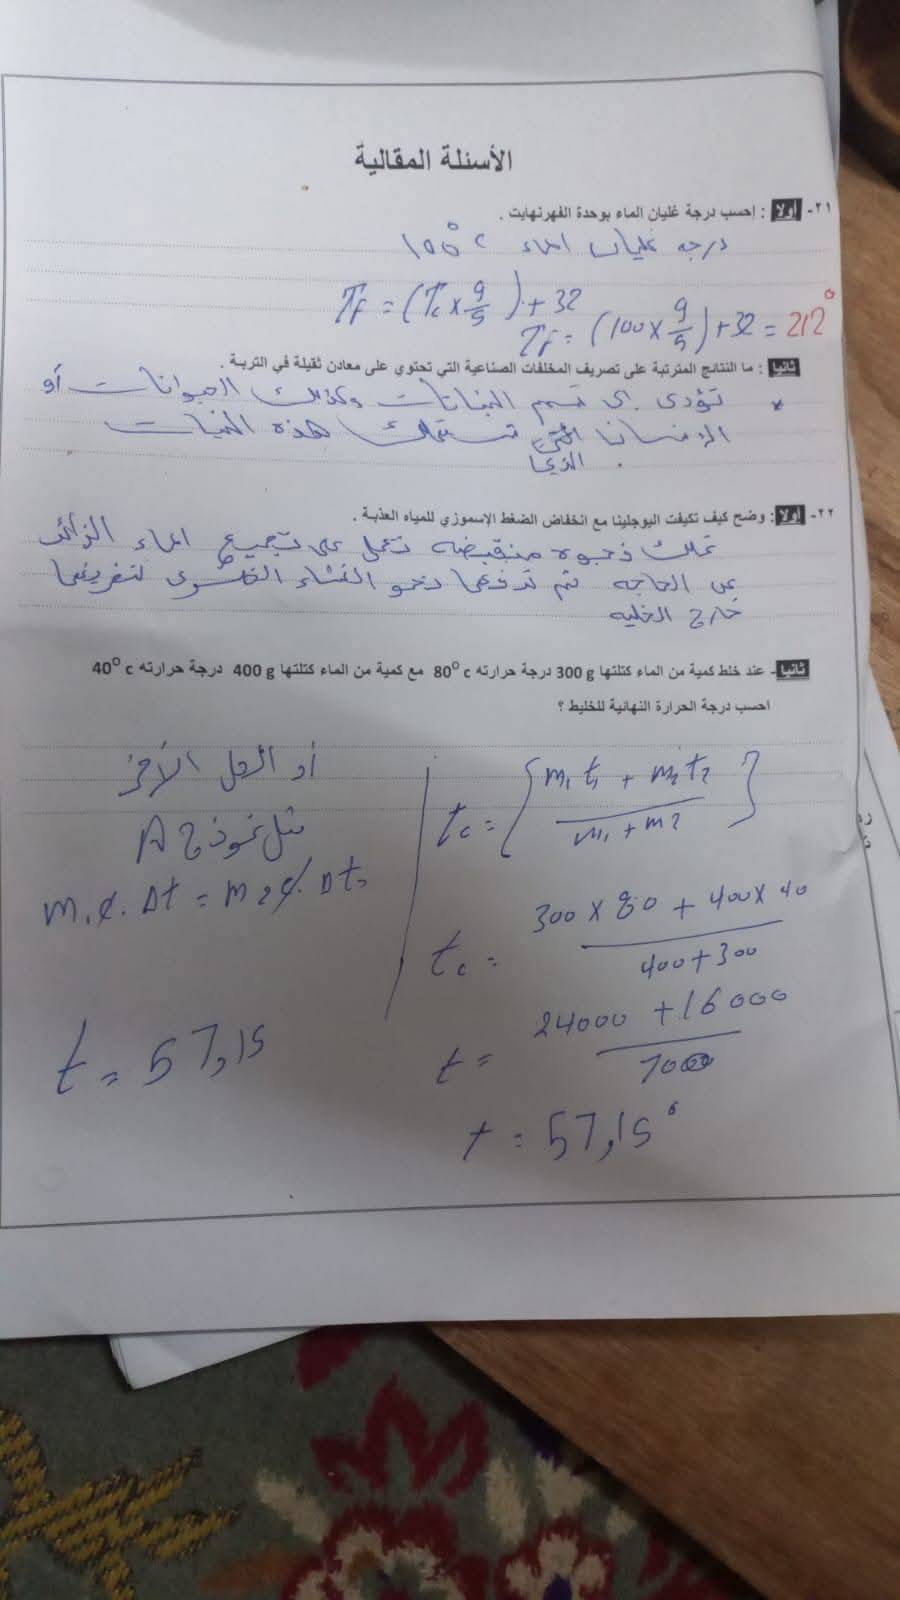 الأسئلة المقالية
٢١- أولا : إحسب درجة غليان الماء بوحدة الفهرنهايت .
درجه غليان الماء 100° c
Tf = (Tc × 9/5) + 32
Tf = (100 × 9/5) + 32 = 212°
ثانيا : ما النتائج المترتبة على تصريف المخلفات الصناعية التي تحتوي على معادن ثقيلة في التربة .
* تؤدى الى تسمم النباتات وكذلك الحيوانات أو
الإنسان التى تستهلك هذه النباتات
الذى
٢٢- أولا : وضح كيف تكيفت اليوجلينا مع انخفاض الضغط الإسموزي للمياه العذبة .
تملك فجوه منقبضه تعمل على تجميع الماء الزائد
عن الحاجه ثم تدفعها نحو الغشاء الخلوى لتفريغها
خارج الخليه
ثانيا- عند خلط كمية من الماء كتلتها 300 g درجة حرارته 80° c مع كمية من الماء كتلتها 400 g درجة حرارته 40° c
احسب درجة الحرارة النهائية للخليط ؟
tc = { m1 t1 + m2 t2 / m1 + m2 }
tc = 300 × 80 + 400 × 40 / 400 + 300
t = 24000 + 16000 / 700
t = 57,15°
أو الحل الأخر
مثل نموذج A
m1 c. Δt = m2 c. Δt2
t = 57,15